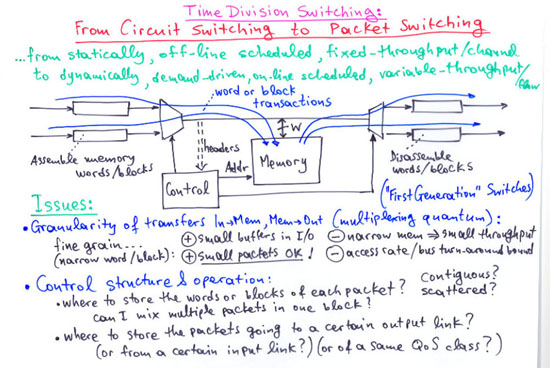 Time Division Switching:
From Circuit Switching to Packet Switching
...from statically, off-line scheduled, fixed-throughput/channel
to dynamically, demand-driven, on-line scheduled, variable-throughput/flow
word or block
transactions
W
headers
Assemble memory
words/blocks
Addr
Memory
Control
Disassemble
words/blocks
("First Generation" Switches)
Issues:
• Granularity of transfers In→Mem, Mem→Out (multiplexing quantum):
fine grain... ⊕ small buffers in I/O ⊖ narrow mem ⇒ small throughput
(narrow word/block): ⊕ Small packets OK! ⊖ access rate/bus turn-around bound
• Control structure & operation:
• where to store the words or blocks of each packet? contiguous? scattered?
can I mix multiple packets in one block?
• where to store the packets going to a certain output link?
(or from a certain input link?) (or of a same QoS class?)